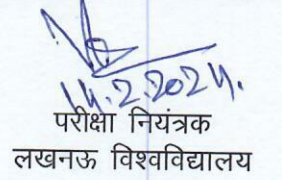 14.2.2024.
परीक्षा नियंत्रक
लखनऊ विश्वविद्यालय